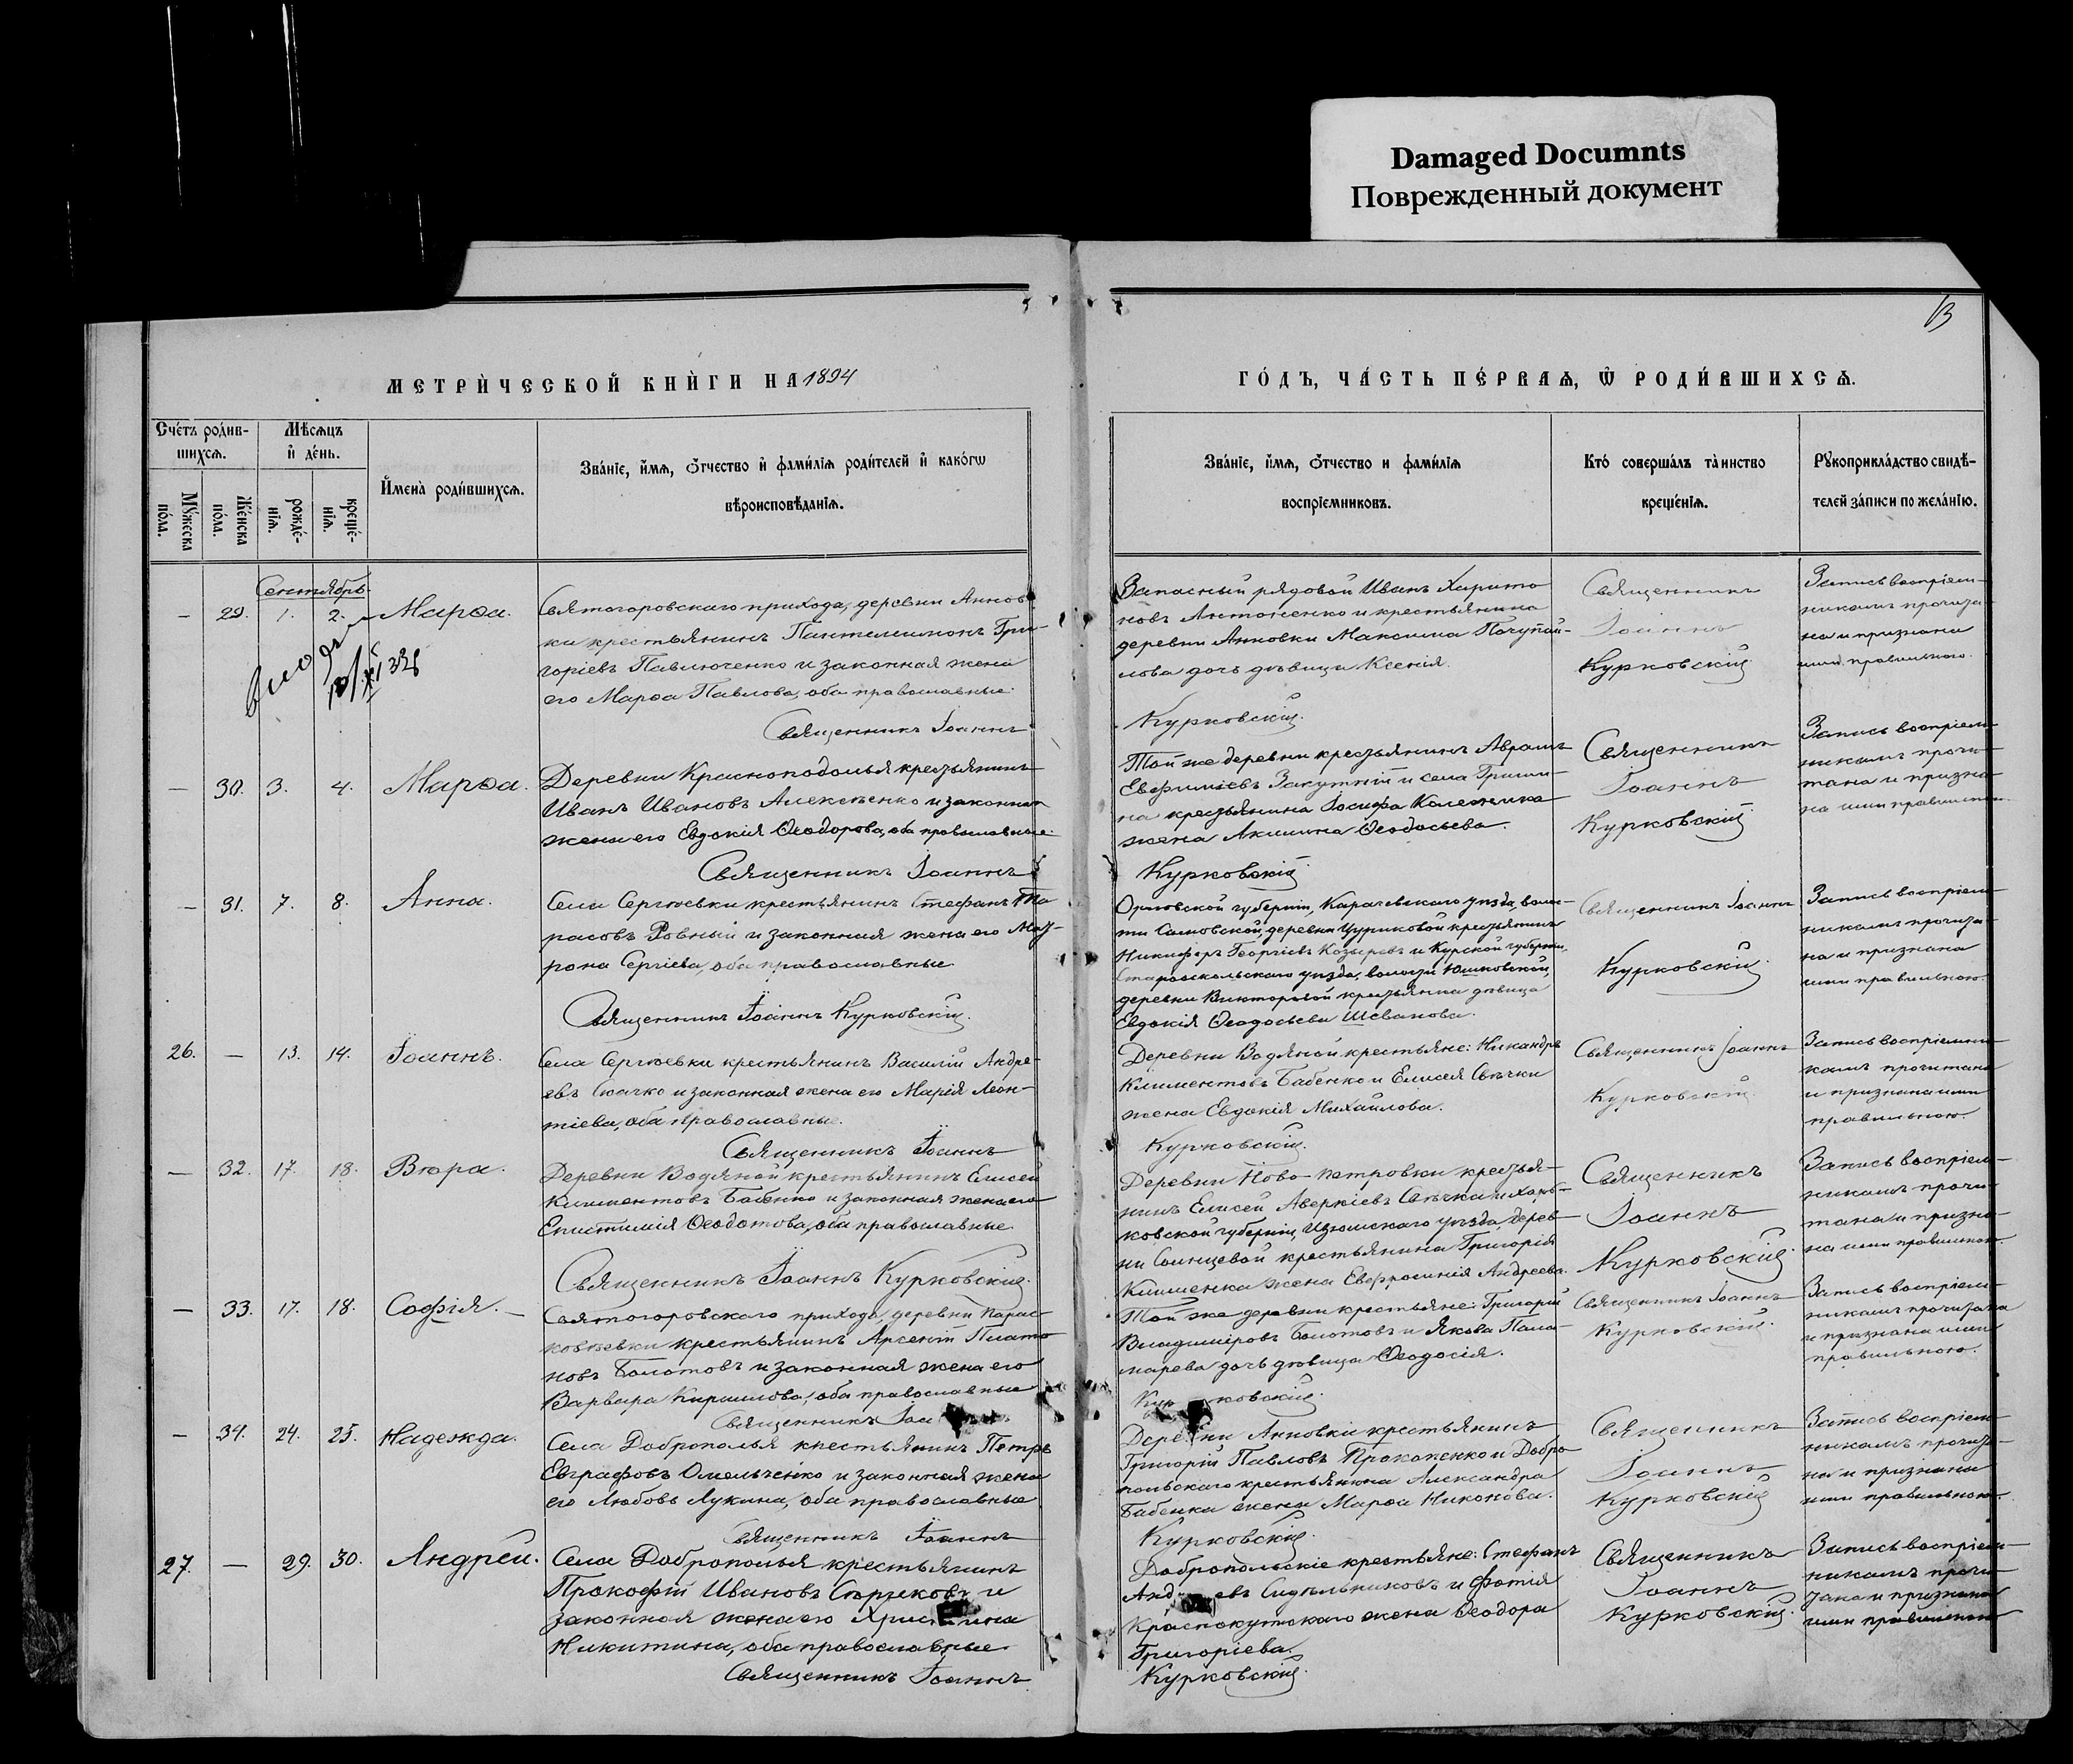 Damaged Documnts
Поврежденный документ
13
МЕТРИ́ЧЕСКОЙ КНИ́ГИ НА 1894
ГО́ДЪ, ЧА́СТЬ ПЕ́РВАѦ, Ѡ҆ РОДИ́ВШИХСѦ.
Сче́тъ роди́в-
шихсѧ.
Мꙋ́жеска
по́ла.
Же́нска
по́ла.
Мѣ́сѧцъ
и҆ де́нь.
рожде́-
нїѧ.
креще́-
нїѧ.
И҆мена̀ роди́вшихсѧ.
Зва́нїе, и҆́мѧ, ѻ҆́тчество и҆ фами́лїѧ роди́телей и҆ како́гѡ
вѣроисповѣ́данїѧ.
Зва́нїе, и҆́мѧ, ѻ҆́тчество и фами́лїѧ
воспрїе́мниковъ.
Кто́ соверша́лъ та̀инство
креще́нїѧ.
Рꙋкоприкла́дство свидѣ́-
телей за́писи по жела́нїю.
Сентябрь.
— 29. 1. 2. Марѳа.
Святогоровскаго прихода, деревни Аннов-
ки крестьянинъ Пантелеимонъ Гри-
горіевъ Павлюченко и законная жена
его Марѳа Павлова, оба православные.
Священникъ Іоаннъ
Запасный рядовой Иванъ Харито
новъ Антоненко и крестьянина
деревни Анновки Максима
дочь дѣвица Ксенія.
Курковскій.
Священникъ
Іоаннъ
Курковскій.
Запись воспріем-
никамъ прочита-
на и признана
ими правильною.
— 30. 3. 4. Марѳа.
Деревни Красноподолья крестьянинъ
Иванъ Ивановъ Алексѣенко и законная
жена его Евдокія Ѳеодорова, оба православные.
Священникъ Іоаннъ
Той же деревни крестьянинъ Авраамъ
Евфиміевъ Закутній и села Гриши-
на крестьянина Іосифа Колесника
жена Акилина Ѳеодосьева.
Курковскій.
Священникъ
Іоаннъ
Курковскій.
Запись воспріем-
никамъ прочи-
тана и призна-
на ими правильною.
— 31. 7. 8. Анна.
Села Сергѣевки крестьянинъ Стефанъ Та
расовъ Ровный и законная жена его Мат-
рона Сергіева, оба православные.
Священникъ Іоаннъ Курковскій.
Орловской губерніи, Карачевскаго уѣзда, волос-
ти деревни крестьянинъ
Никифоръ Георгіевъ Козыревъ и Курской губерніи,
Старооскольскаго уѣзда, волости
деревни Викторовой крестьянка дѣвица
Евдокія Ѳеодосьева
Священникъ Іоаннъ
Курковскій.
Запись воспріем-
никамъ прочита-
на и признана
ими правильною.
26. — 13. 14. Іоаннъ.
Села Сергѣевки крестьянинъ Василій Андре-
евъ и законная жена его Марія Леон-
тіева, оба православные.
Священникъ Іоаннъ
Деревни Водяной крестьяне: Никандръ
Климентовъ Бабенко и Елисея Свѣчки
жена Евдокія Михайлова.
Курковскій.
Священникъ Іоаннъ
Курковскій.
Запись воспріемни-
камъ прочитана
и признана ими
правильною.
— 32. 17. 18. Вѣра.
Деревни Водяной крестьянинъ Елисей
Климентовъ Бабенко и законная жена его
Епистимія Ѳеодотова, оба православные.
Священникъ Іоаннъ Курковскій.
Деревни Ново-Петровки крестья-
нинъ Елисей Аверкіевъ Свѣчка и Харь-
ковской губерніи, Изюмскаго уѣзда, дерев-
ни Солнцевой крестьянина Григорія
Клименка жена Евфросинія Андреева.
Священникъ
Іоаннъ
Курковскій.
Запись воспріем-
никамъ прочи-
тана и призна-
на ими правильною.
— 33. 17. 18. Софія. —
Святогоровскаго прихода, деревни Парас-
ковѣевки крестьянинъ Арсеній Плато
новъ Болотовъ и законная жена его
Варвара Кириллова, оба православные
Священникъ Іоаннъ
Той же деревни крестьяне: Григорій
Владиміровъ Болотовъ и Якова Пона-
марева дочь дѣвица Ѳеодосія.
Курковскій.
Священникъ Іоаннъ
Курковскій.
Запись воспріем-
никамъ прочитана
и признана ими
правильною.
— 34. 24. 25. Надежда.
Села Доброполья крестьянинъ Петръ
Евграфовъ Омельченко и законная жена
его Любовь Лукина, оба православные
Священникъ Іоаннъ
Деревни Анновки крестьянинъ
Григорій Павловъ Прокопенко и Добро
польскаго крестьянина Александра
Бабенка жена Марѳа Никонова.
Курковскій.
Священникъ
Іоаннъ
Курковскій
Запись воспріем-
никамъ прочита-
на и признана
ими правильною.
27. — 29. 30. Андрей.
Села Доброполья крестьянинъ
Прокофій Ивановъ и
законная жена его Христина
Никитина, оба православные
Священникъ Іоаннъ
Добропольскіе крестьяне: Стефанъ
Андреевъ Сидѣльниковъ и Фотія
Краснокутскаго жена Ѳеодора
Григоріева.
Курковскій.
Священникъ
Іоаннъ
Курковскій.
Запись воспріем-
никамъ прочи-
тана и признана
ими правильною